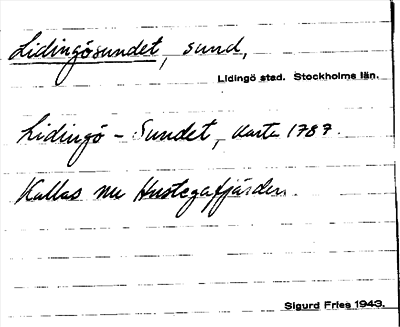 Lidingösundet, sund,
Lidingö stad. Stockholms län.
Lidingö - Sundet, karta 1787.
Kallas nu Hustegafjärden.
Sigurd Fries 1943.